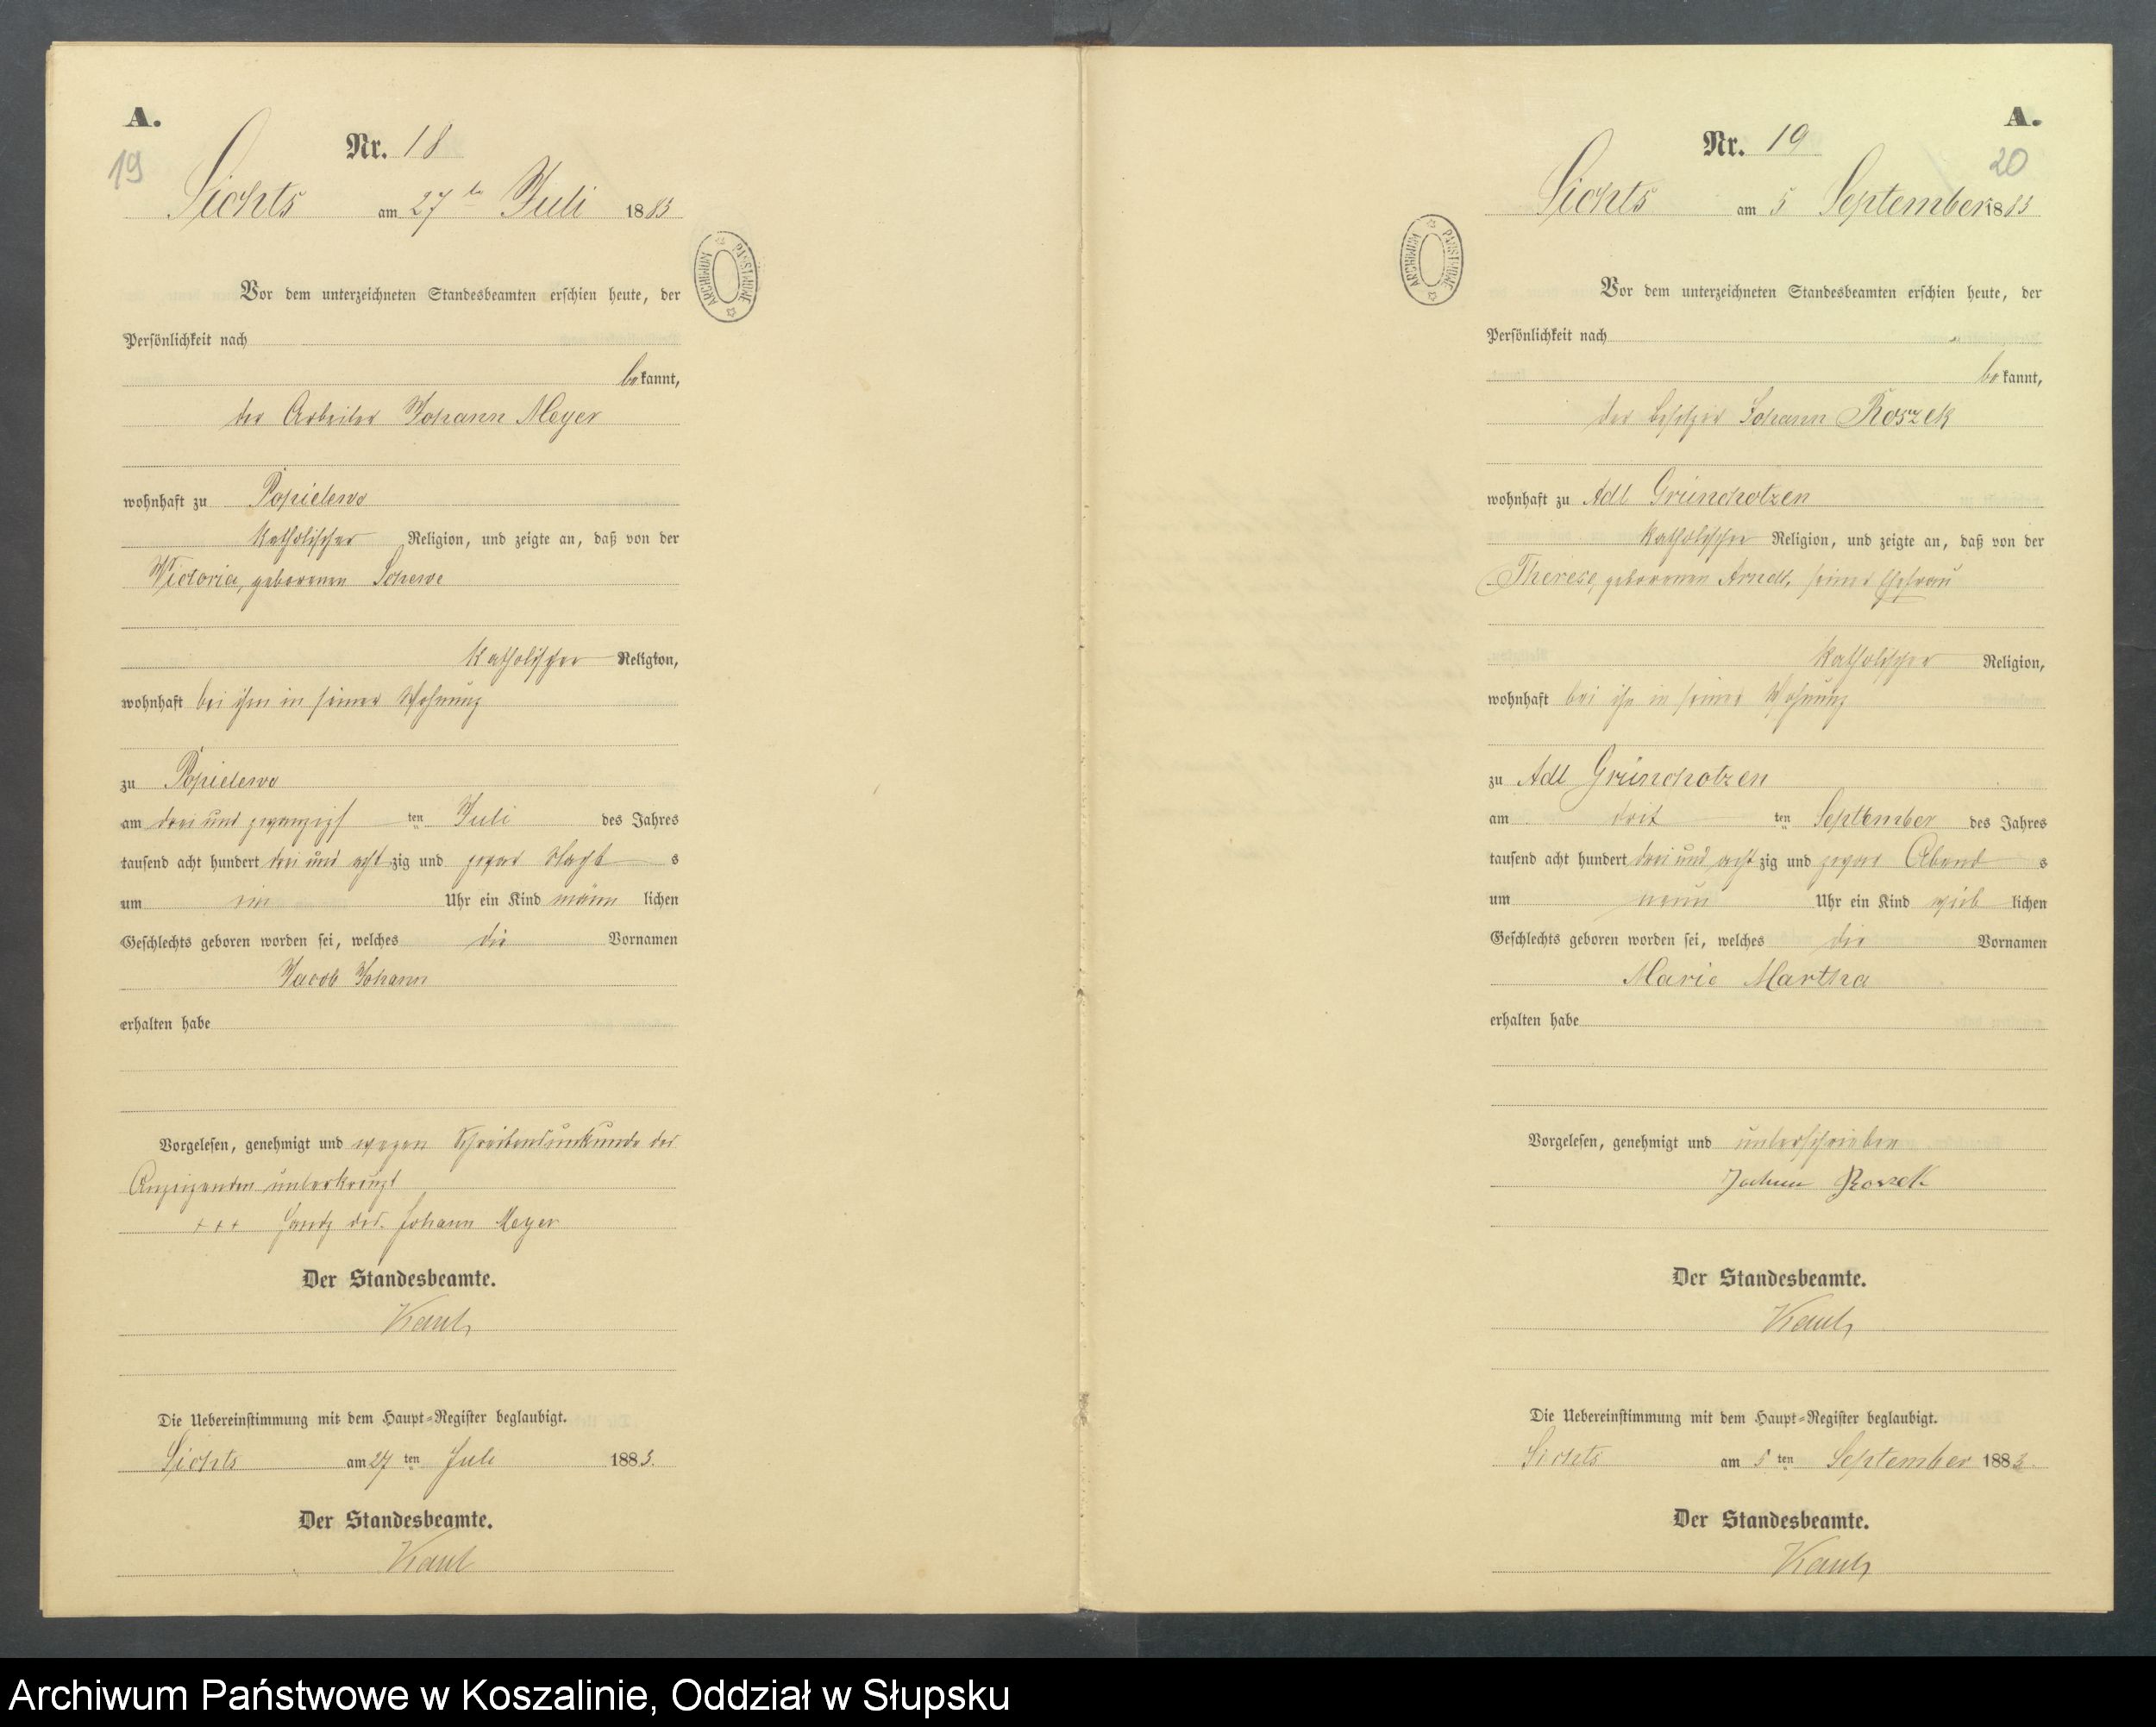 A.
19
Nr. 18
Sichts am 27ten Juli 1883
ARCHIWUM PAŃSTWOWE
Vor dem unterzeichneten Standesbeamten erschien heute, der
Persönlichkeit nach
bekannt,
der Arbeiter Johann Meyer
wohnhaft zu Popielewo
katholischer Religion, und zeigte an, daß von der
Victoria, geborenen Schewe
katholischer Religion,
wohnhaft bei ihm in seiner Wohnung
zu Popielewo
am drei und zwanzigsten Juli des Jahres
tausend acht hundert drei und achtzig und zwar Nachts
um ein Uhr ein Kind männlichen
Geschlechts geboren worden sei, welches die Vornamen
Jacob Johann
erhalten habe
Vorgelesen, genehmigt und wegen Schreibensunkunde des
Anzeigenden unterkreuzt
+++ Handz des Johann Meyer
Der Standesbeamte.
Die Uebereinstimmung mit dem Haupt-Register beglaubigt.
Sichts am 27ten Juli 1883.
Der Standesbeamte.
A.
20
Nr. 19
Sichts am 5 September 1883
ARCHIWUM PAŃSTWOWE
Vor dem unterzeichneten Standesbeamten erschien heute, der
Persönlichkeit nach
bekannt,
der Besitzer Johann Roszek
wohnhaft zu Adl Grünchotzen
katholischer Religion, und zeigte an, daß von der
Therese, geborenen Arndt, seiner Ehefrau
katholischer Religion,
wohnhaft bei ihm in seiner Wohnung
zu Adl Grünchotzen
am dritten September des Jahres
tausend acht hundert drei und achtzig und zwar Abends
um neun Uhr ein Kind weiblichen
Geschlechts geboren worden sei, welches die Vornamen
Marie Martha
erhalten habe
Vorgelesen, genehmigt und unterschrieben
Johann Roszek
Der Standesbeamte.
Die Uebereinstimmung mit dem Haupt-Register beglaubigt.
Sichts am 5ten September 1883.
Der Standesbeamte.
Archiwum Państwowe w Koszalinie, Oddział w Słupsku